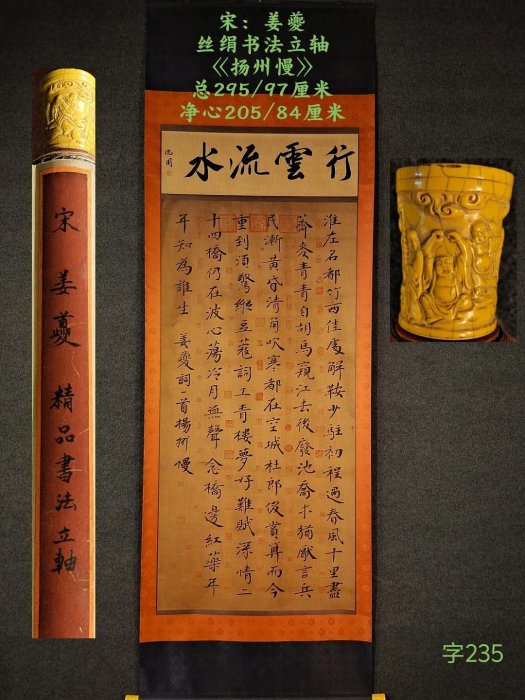 宋：姜夔
丝绢书法立轴
《扬州慢》
总295/97厘米
净心205/84厘米
行雲流水
沈周
淮左名都竹西佳處解鞍少駐初程過春風十里盡
薺麥青青自胡馬窺江去後廢池喬木猶厭言兵
民漸黃昏清角吹寒都在空城杜郎俊賞算而今
重到須驚縱豆蔻詞工青樓夢好難賦深情二
十四橋仍在波心蕩冷月無聲念橋邊紅藥年
年知為誰生 姜夔詞一首楊州慢
宋 姜夔 精品書法立軸
字235